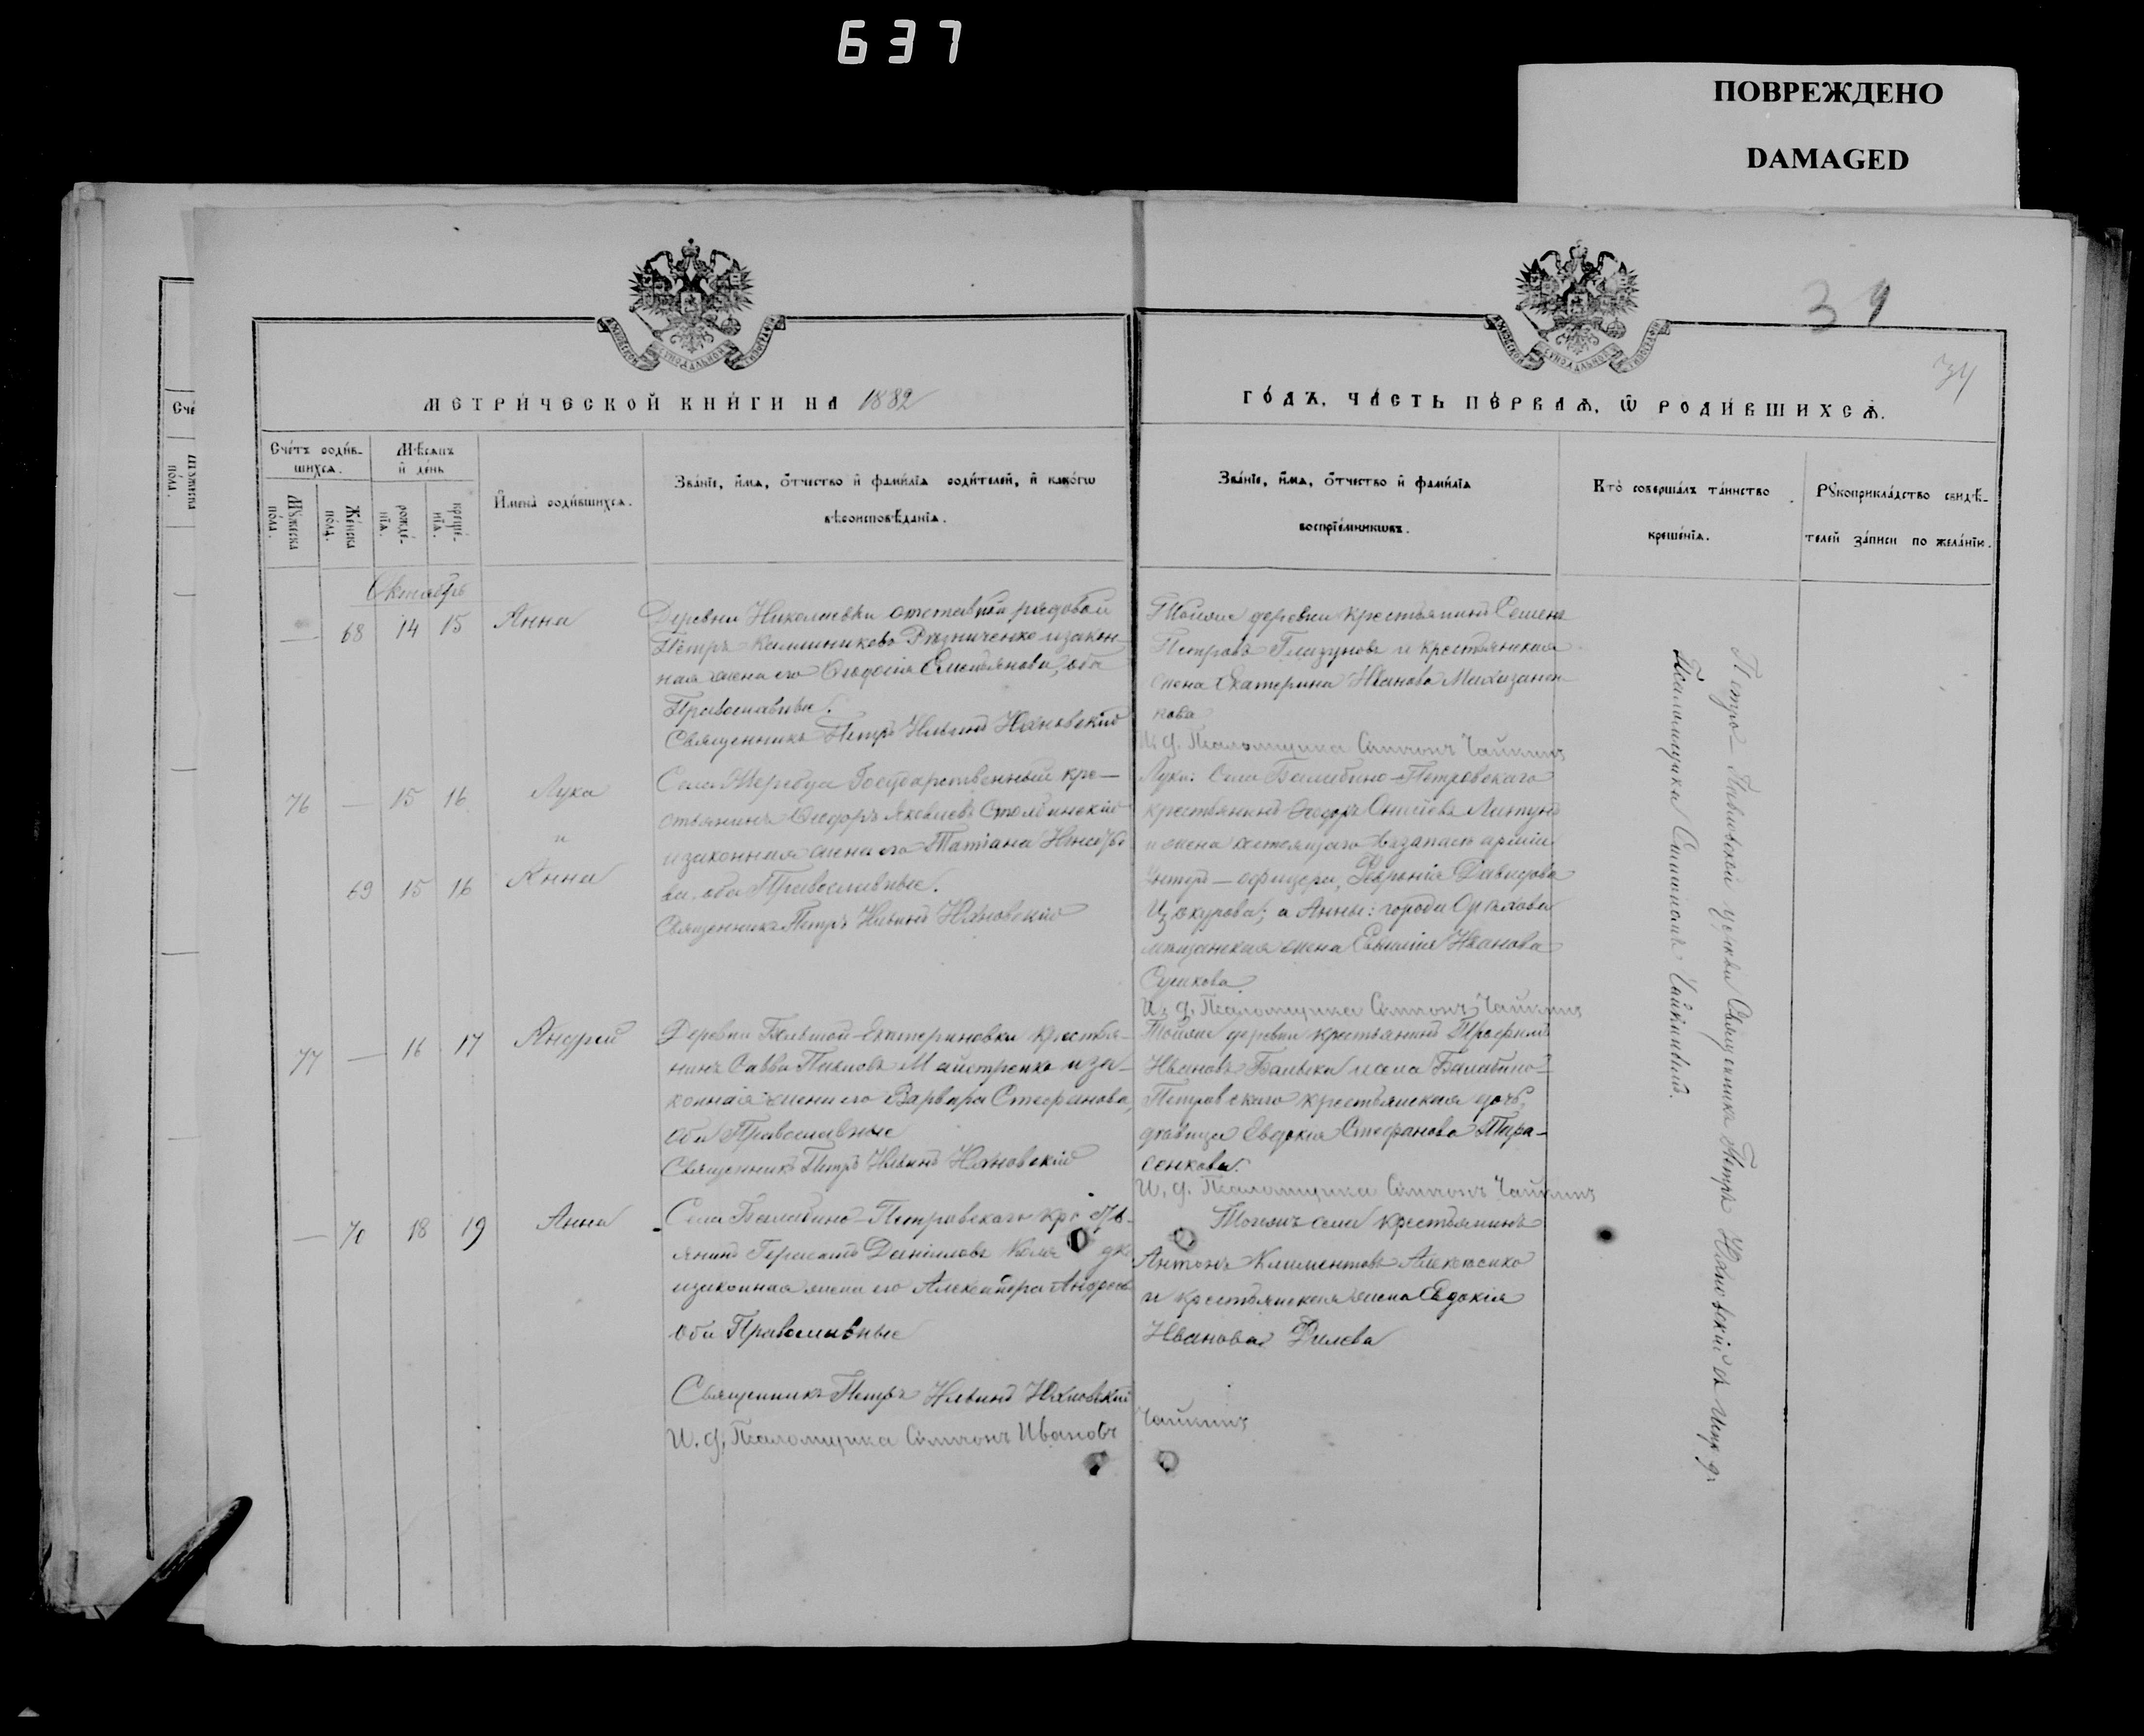 637
ПОВРЕЖДЕНО
DAMAGED
39
34
МЕТРИ́ЧЕСКОЙ КНИ́ГИ НА 1882
ГО́ДЪ, ЧА́СТЬ ПЕ́РВАѦ, Ѿ РОДИ́ВШИХСѦ.
Сче́тъ роди́в-
шихсѧ.
Мѣсѧцъ
и҆ де́нь
Мꙋ́жеска
по́ла.
Же́нска
по́ла.
рожде́-
нїѧ.
креще́-
нїѧ.
И҆мена̀ роди́вшихсѧ.
Зва́нїе, и҆́мѧ, ѻ҆́тчество и҆ фами́лїѧ роди́телей, и҆ како́гѡ
вѣроисповѣ́данїѧ.
Зва́нїе, и҆́мѧ, ѻ҆́тчество и҆ фами́лїѧ
воспрїе́мникѡвъ.
Кто̀ соверша́лъ та́инство
креще́нїѧ.
Рꙋкоприкла́дство свидѣ́-
телей за́писи по жела́нїю.
Октябрь
— 68 14 15 Анна
Деревни Николаевки отставной рядовой
Петръ Калинниковъ Рѣзниченко и закон
ная жена его Ѳеодосія Емельянова, оба
Православные.
Священникъ Петръ Ильинъ Яхновскій
Тойже деревни крестьянинъ Семенъ
Петровъ Глазуновъ и крестьянская
жена Екатерина Иванова
нова
И. д. Псаломщика Симеонъ Чайкинъ
76 — 15 16 Лука
и
69 15 16 Анна
Села Жеребца Государственный кре—
стьянинъ Ѳеодоръ Яковлевъ Столбинскій
и законная жена его Татіана
ва, оба Православные.
Священникъ Петръ Ильинъ Яхновскій
Луки: Села Балабино-Петровскаго
крестьянинъ Ѳеодоръ Онисіевъ
и жена состоящаго въ запасѣ арміи
унтеръ—офицера, Февронія Давидова
а Анны: города Орѣхова
мѣщанская жена Евфимія Иванова
Сушкова
И. д. Псаломщика Симеонъ Чайкинъ
77 — 16 17 Андрей
Деревни Большой-Екатериновки крестья-
нинъ Савва Павловъ Майстренко и за-
конная жена его Варвара Стефанова,
оба Православные
Священникъ Петръ Ильинъ Яхновскій
Тойже деревни крестьянинъ Трофимъ
Ивановъ и села Балабино-
Петровскаго крестьянская дочь,
дѣвица Евдокія Стефанова Тара-
сенкова.
И. д. Псаломщика Симеонъ Чайкинъ
— 70 18 19 Анна
Села Балабино-Петровскаго кре стья-
янинъ Герасимъ Даніиловъ
и законная жена его Александра Андреева
оба Православные
Священникъ Петръ Ильинъ Яхновскій
И. д. Псаломщика Симеонъ Ивановъ Чайкинъ
Тогожъ села крестьянинъ
Антонъ Климентовъ Алексѣенко
и крестьянская жена Евдокія
Иванова
Петро-Павловской церкви Священникъ Петръ Яхновскій и испр. д.
Псаломщика Симеонъ Чайкинъ.